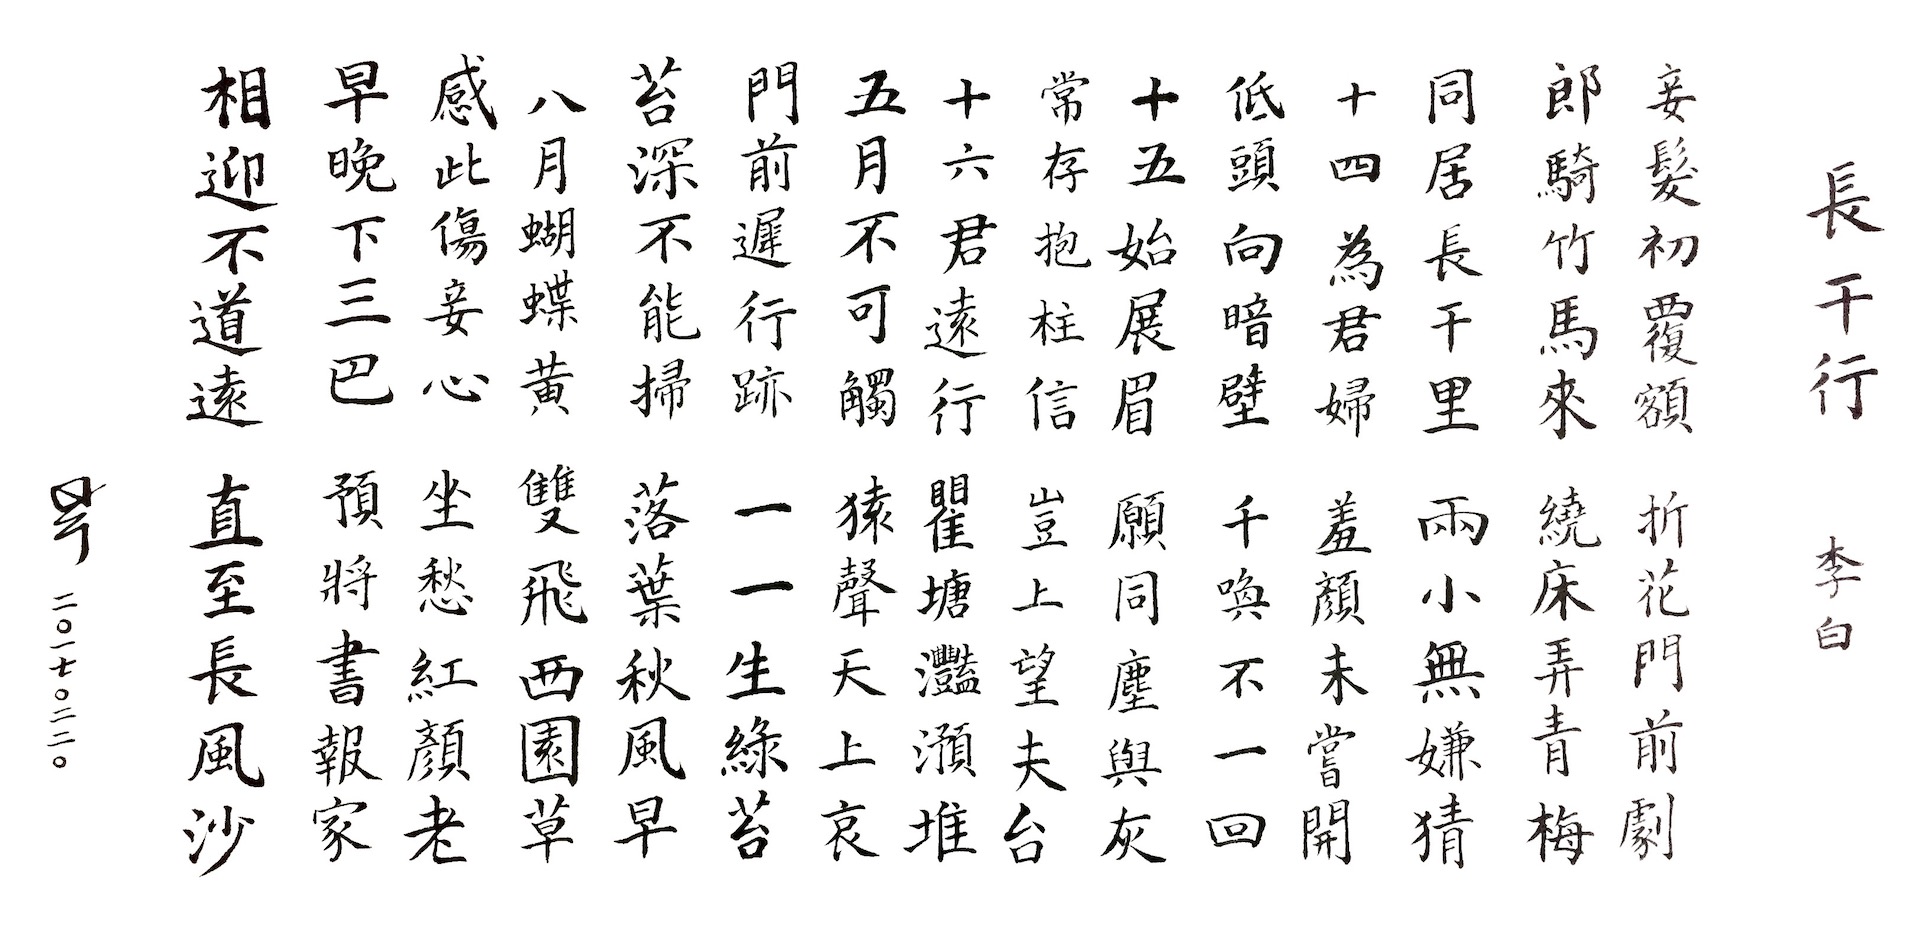 長干行 李白
妾髮初覆額 折花門前劇
郎騎竹馬來 繞床弄青梅
同居長干里 兩小無嫌猜
十四為君婦 羞顏未嘗開
低頭向暗壁 千喚不一回
十五始展眉 願同塵與灰
常存抱柱信 豈上望夫台
十六君遠行 瞿塘灩澦堆
五月不可觸 猿聲天上哀
門前遲行跡 一一生綠苔
苔深不能掃 落葉秋風早
八月蝴蝶黃 雙飛西園草
感此傷妾心 坐愁紅顏老
早晚下三巴 預將書報家
相迎不道遠 直至長風沙
二〇一七〇二二〇